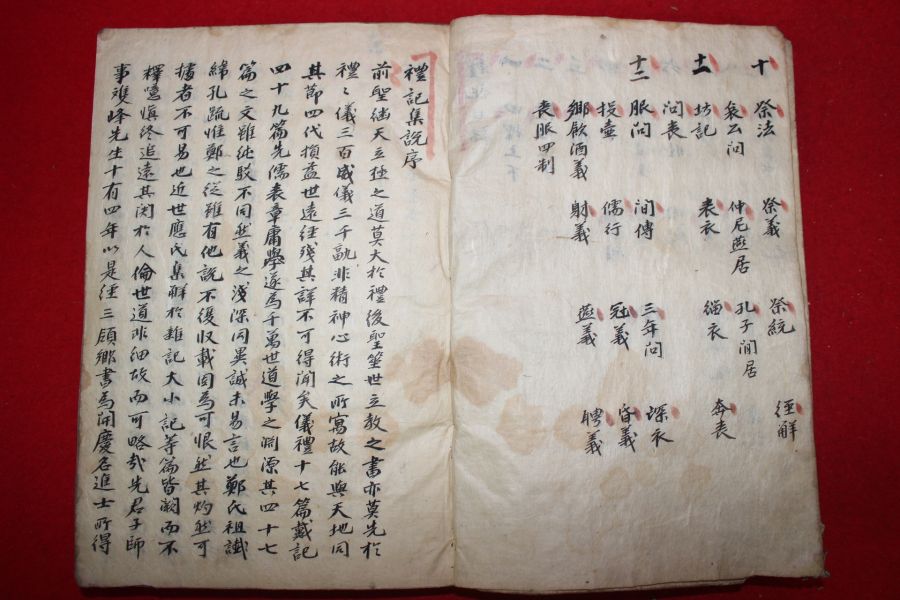 十 祭法 祭義 祭統 經解
哀公问 仲尼燕居 孔子閒居
十一 坊記 表衣 緇衣 奔喪
问喪
十二 服问 间傳 三年问 深衣
投壺 儒行 冠義 昏義
鄉飲酒義 射義 燕義 聘義
喪服四制
禮記集說序
前聖繼天立極之道莫大於禮後聖垂世立教之書亦莫先於
禮々儀三百威儀三千孰非精神心術之所寓故能與天地同
其節四代損益世遠經殘其詳不可得聞矣儀禮十七篇戴記
四十九篇先儒表章庸學遂為千萬世道學之淵源其四十七
篇之文雖純駁不同然義之淺深同異誠未易言也鄭氏祖讖
緯孔疏惟鄭之從雖有他說不復收載固為可恨然其灼然可
據者不可易也近世應氏集解於雜記大小記等篇皆闕而不
釋噫慎終追遠其関於人倫世道非細故而可略哉先君子師
事雙峰先生十有四年以是經三領鄉書為開慶名進士所得